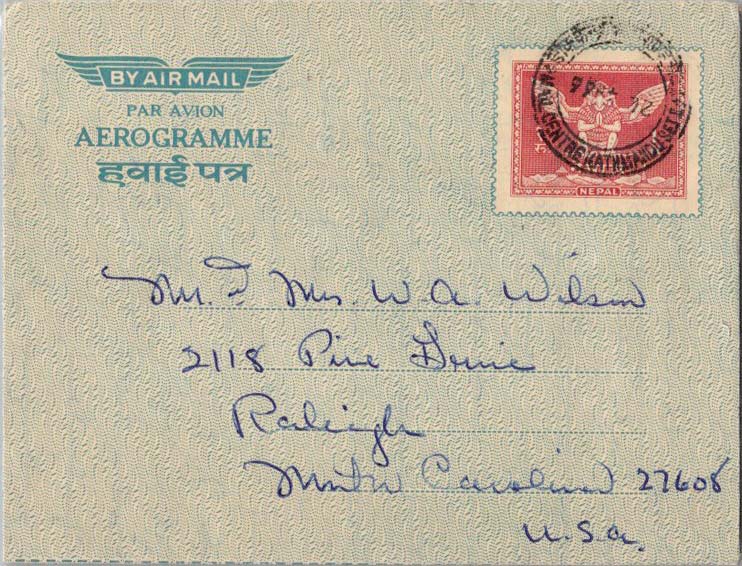 BY AIR MAIL
PAR AVION
AEROGRAMME
हवाई पत्र
NEPAL
CENTRE KATHMANDU
Mr. & Mrs. W. A. Wilson
2118 Pine Drive
Raleigh
North Carolina 27608
U.S.A.